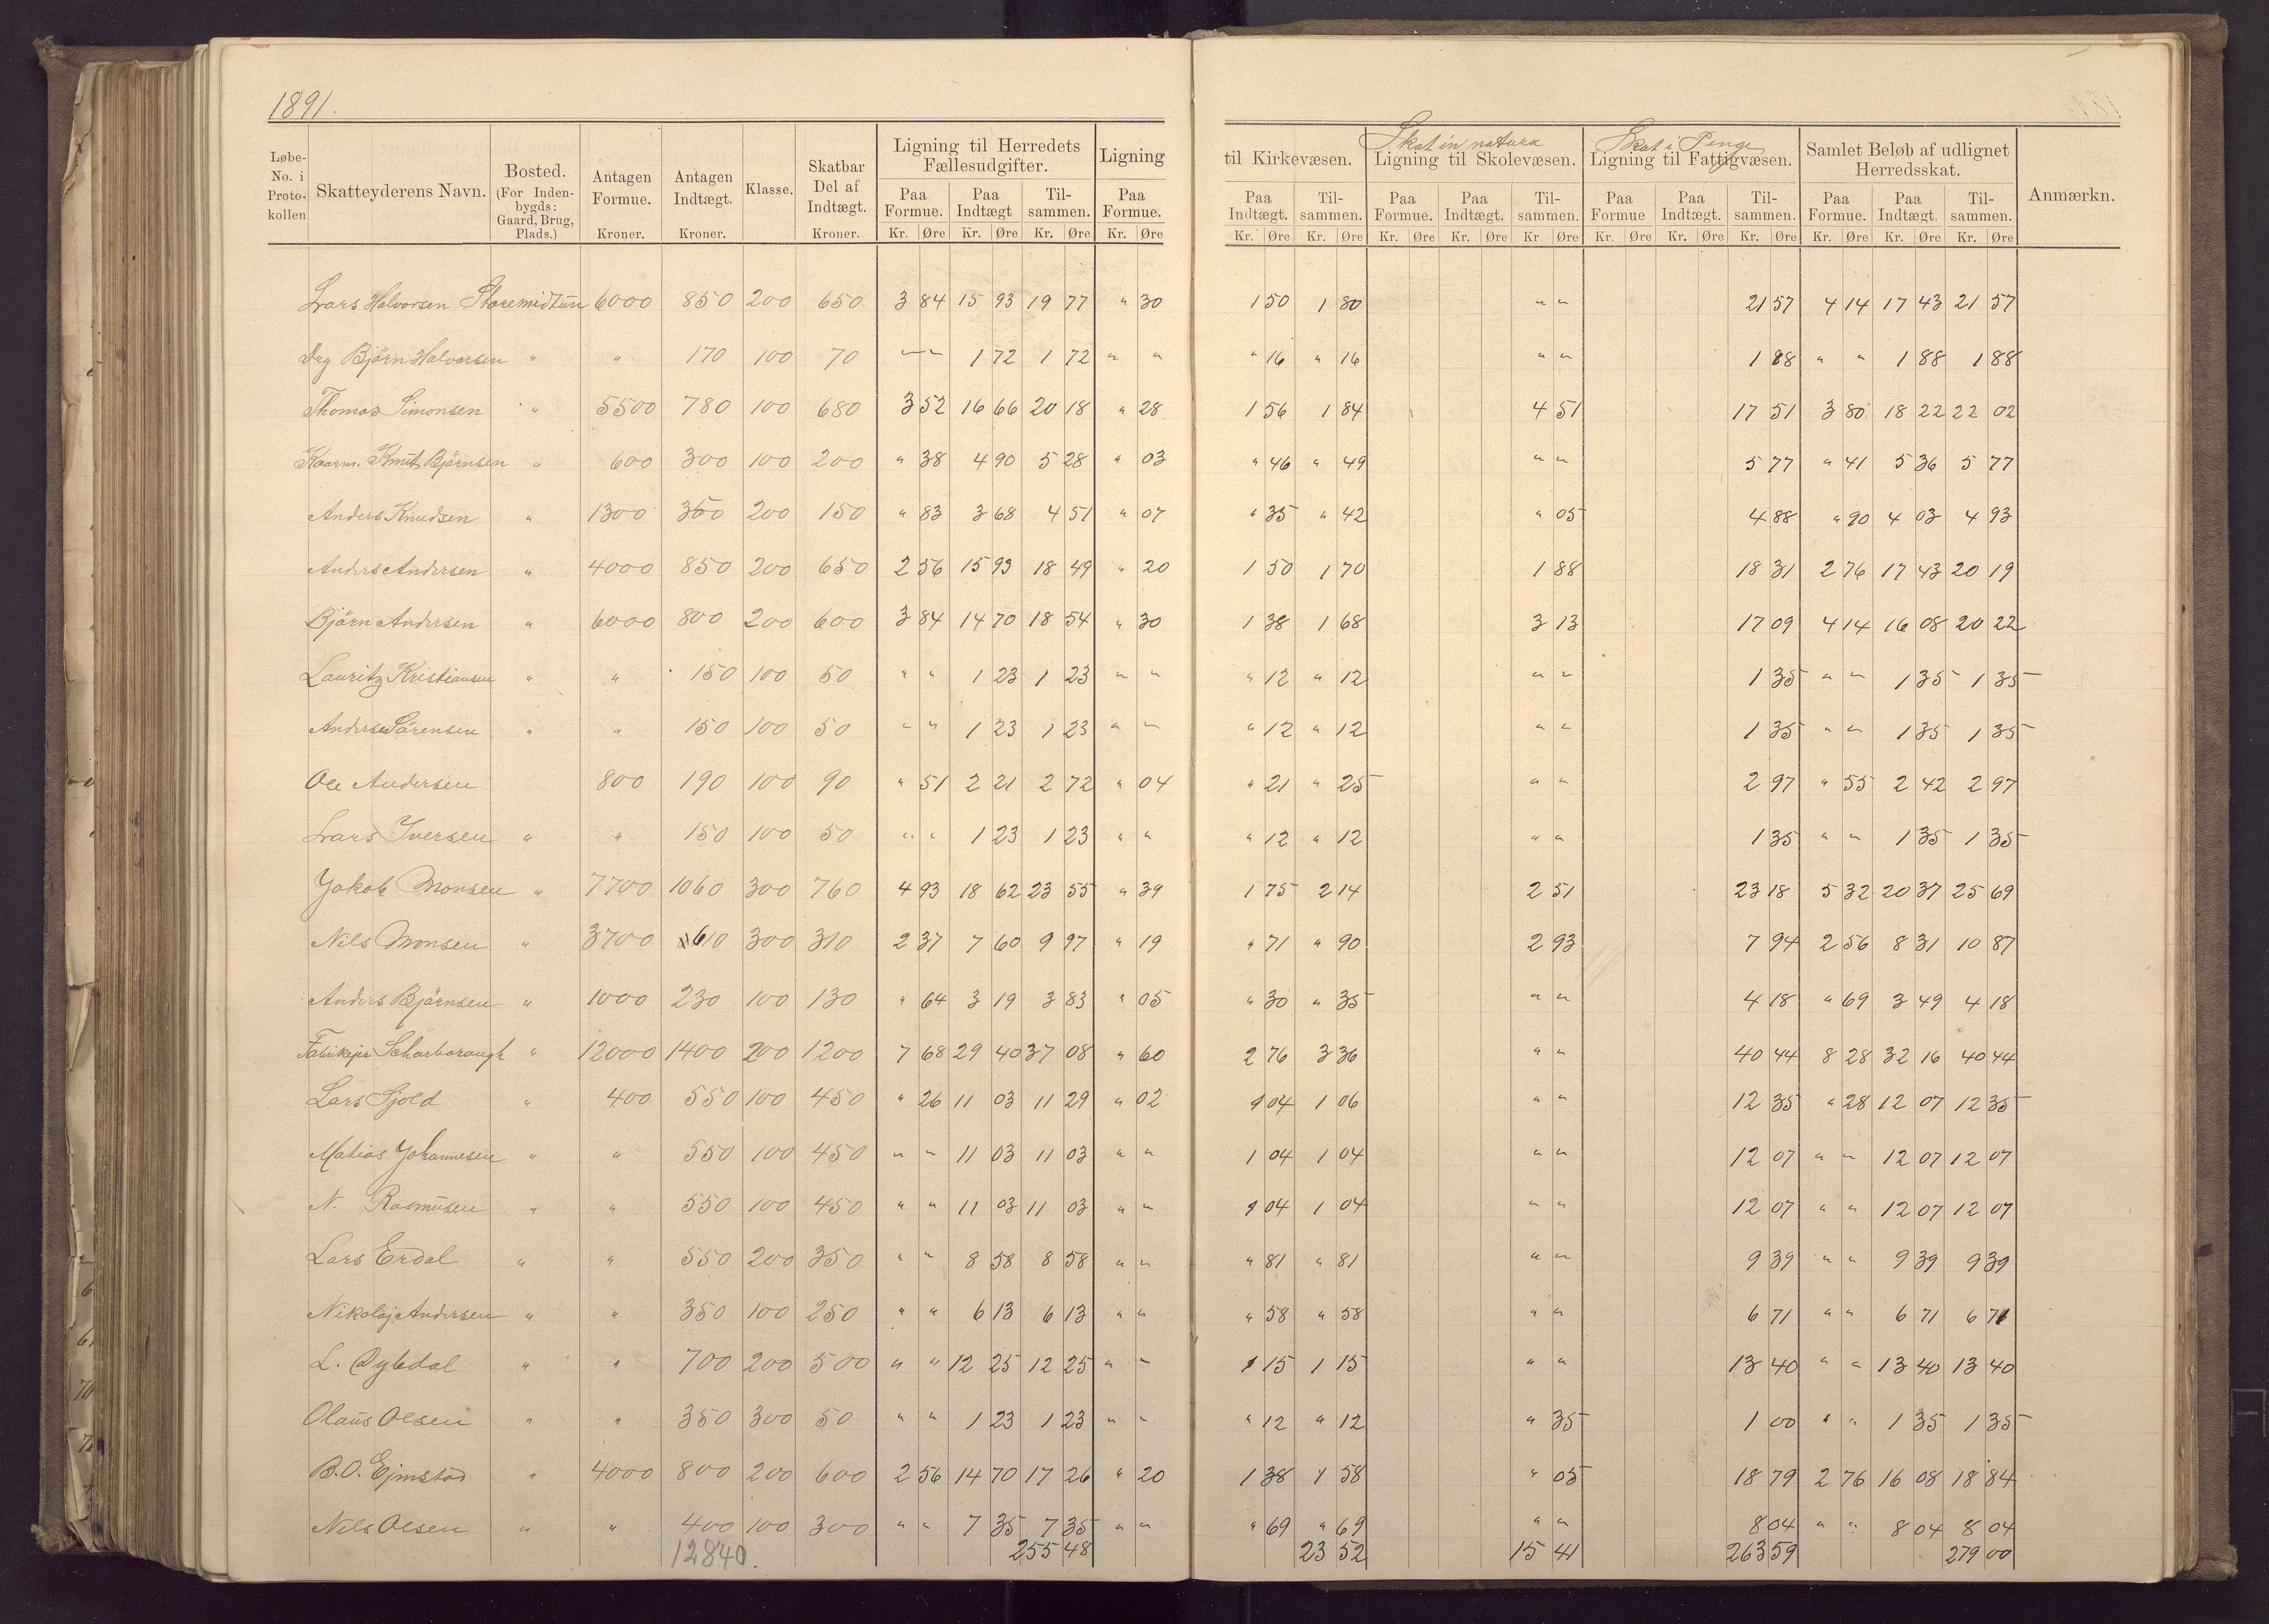 1891.
Løbe-No. i Proto-kollen | Skatteyderens Navn. | Bosted. (For Inden-bygds: Gaard, Brug, Plads.) | Antagen Formue. Kroner. | Antagen Indtægt. Kroner. | Klasse. | Skatbar Del af Indtægt. Kroner. | Ligning til Herredets Fællesudgifter. Paa Formue. Kr. Øre | Paa Indtægt Kr. Øre | Til-sammen. Kr. Øre | Ligning Paa Formue. Kr. Øre | til Kirkevæsen. Paa Indtægt. Kr. Øre | Til-sammen. Kr. Øre | Skat in natura Ligning til Skolevæsen. Paa Formue. Kr. Øre | Paa Indtægt. Kr. Øre | Til-sammen. Kr Øre | Skat i Penge Ligning til Fattigvæsen. Paa Formue Kr. Øre | Paa Indtægt. Kr. Øre | Til-sammen. Kr. Øre | Samlet Beløb af udlignet Herredsskat. Paa Formue. Kr. Øre | Paa Indtægt. Kr. Øre | Til-sammen. Kr. Øre | Anmærkn.
Lars Halvorsen Storemidtun 6000 850 200 650 3 84 15 93 19 77 " 30 1 50 1 80 " " 21 57 4 14 17 43 21 57
Drg Bjørn Halvorsen " " 170 100 70 " " 1 72 1 72 " " " 16 " 16 " " 1 88 " " 1 88 1 88
Thomas Simonsen " 5500 780 100 680 3 52 16 66 20 18 " 28 1 56 1 84 4 51 17 51 3 80 18 22 22 02
Kaarm. Knut Bjørnsen " 600 300 100 200 " 38 4 90 5 28 " 03 " 46 " 49 " " 5 77 " 41 5 36 5 77
Anders Knudsen " 1300 350 200 150 " 83 3 68 4 51 " 07 " 35 " 42 " 05 4 88 " 90 4 03 4 93
Anders Andersen " 4000 850 200 650 2 56 15 93 18 49 " 20 1 50 1 70 1 88 18 31 2 76 17 43 20 19
Bjørn Andersen " 6000 800 200 600 3 84 14 70 18 54 " 30 1 38 1 68 3 13 17 09 4 14 16 08 20 22
Lauritz Kristiansen " " 150 100 50 " " 1 23 1 23 " " " 12 " 12 " " 1 35 " " 1 35 1 35
Anders Sørensen " " 150 100 50 " " 1 23 1 23 " " " 12 " 12 " " 1 35 " " 1 35 1 35
Ole Andersen 800 190 100 90 " 51 2 21 2 72 " 04 " 21 " 25 " " 2 97 " 55 2 42 2 97
Lars Iversen " " 150 100 50 " " 1 23 1 23 " " " 12 " 12 " " 1 35 " " 1 35 1 35
Jakob Monsen " 7700 1060 300 760 4 93 18 62 23 55 " 39 1 75 2 14 2 51 23 18 5 32 20 37 25 69
Nils Monsen " 3700 610 300 310 2 37 7 60 9 97 " 19 " 71 " 90 2 93 7 94 2 56 8 31 10 87
Anders Bjørnsen " 1000 230 100 130 " 64 3 19 3 83 " 05 " 30 " 35 " " 4 18 " 69 3 49 4 18
Scharborough " 12000 1400 200 1200 7 68 29 40 37 08 " 60 2 76 3 36 " " 40 44 8 28 32 16 40 44
Lars Sjold " 400 550 100 450 " 26 11 03 11 29 " 02 1 04 1 06 " " 12 35 " 28 12 07 12 35
Matias Johannesen " " 550 100 450 " " 11 03 11 03 " " 1 04 1 04 " " 12 07 " " 12 07 12 07
N. Rasmusen " " 550 100 450 " " 11 03 11 03 " " 1 04 1 04 " " 12 07 " " 12 07 12 07
Lars Erdal " " 550 200 350 " " 8 58 8 58 " " " 81 " 81 " " 9 39 " " 9 39 9 39
Nikolaj Andersen " " 350 100 250 " " 6 13 6 13 " " " 58 " 58 " " 6 71 " " 6 71 6 71
L. Dybdal " " 700 200 500 " " 12 25 12 25 " " 1 15 1 15 " " 13 40 " " 13 40 13 40
Olaus Olsen " " 350 300 50 " " 1 23 1 23 " " " 12 " 12 " 35 1 00 " " 1 35 1 35
B.O. Ejmstad " 4000 800 200 600 2 56 14 70 17 26 " 20 1 38 1 58 " 05 18 79 2 76 16 08 18 84
Nils Olsen " " 400 100 300 " " 7 35 7 35 " " " 69 " 69 " " 8 04 " " 8 04 8 04
12840. 255 48 23 52 15 41 263 59 279 00